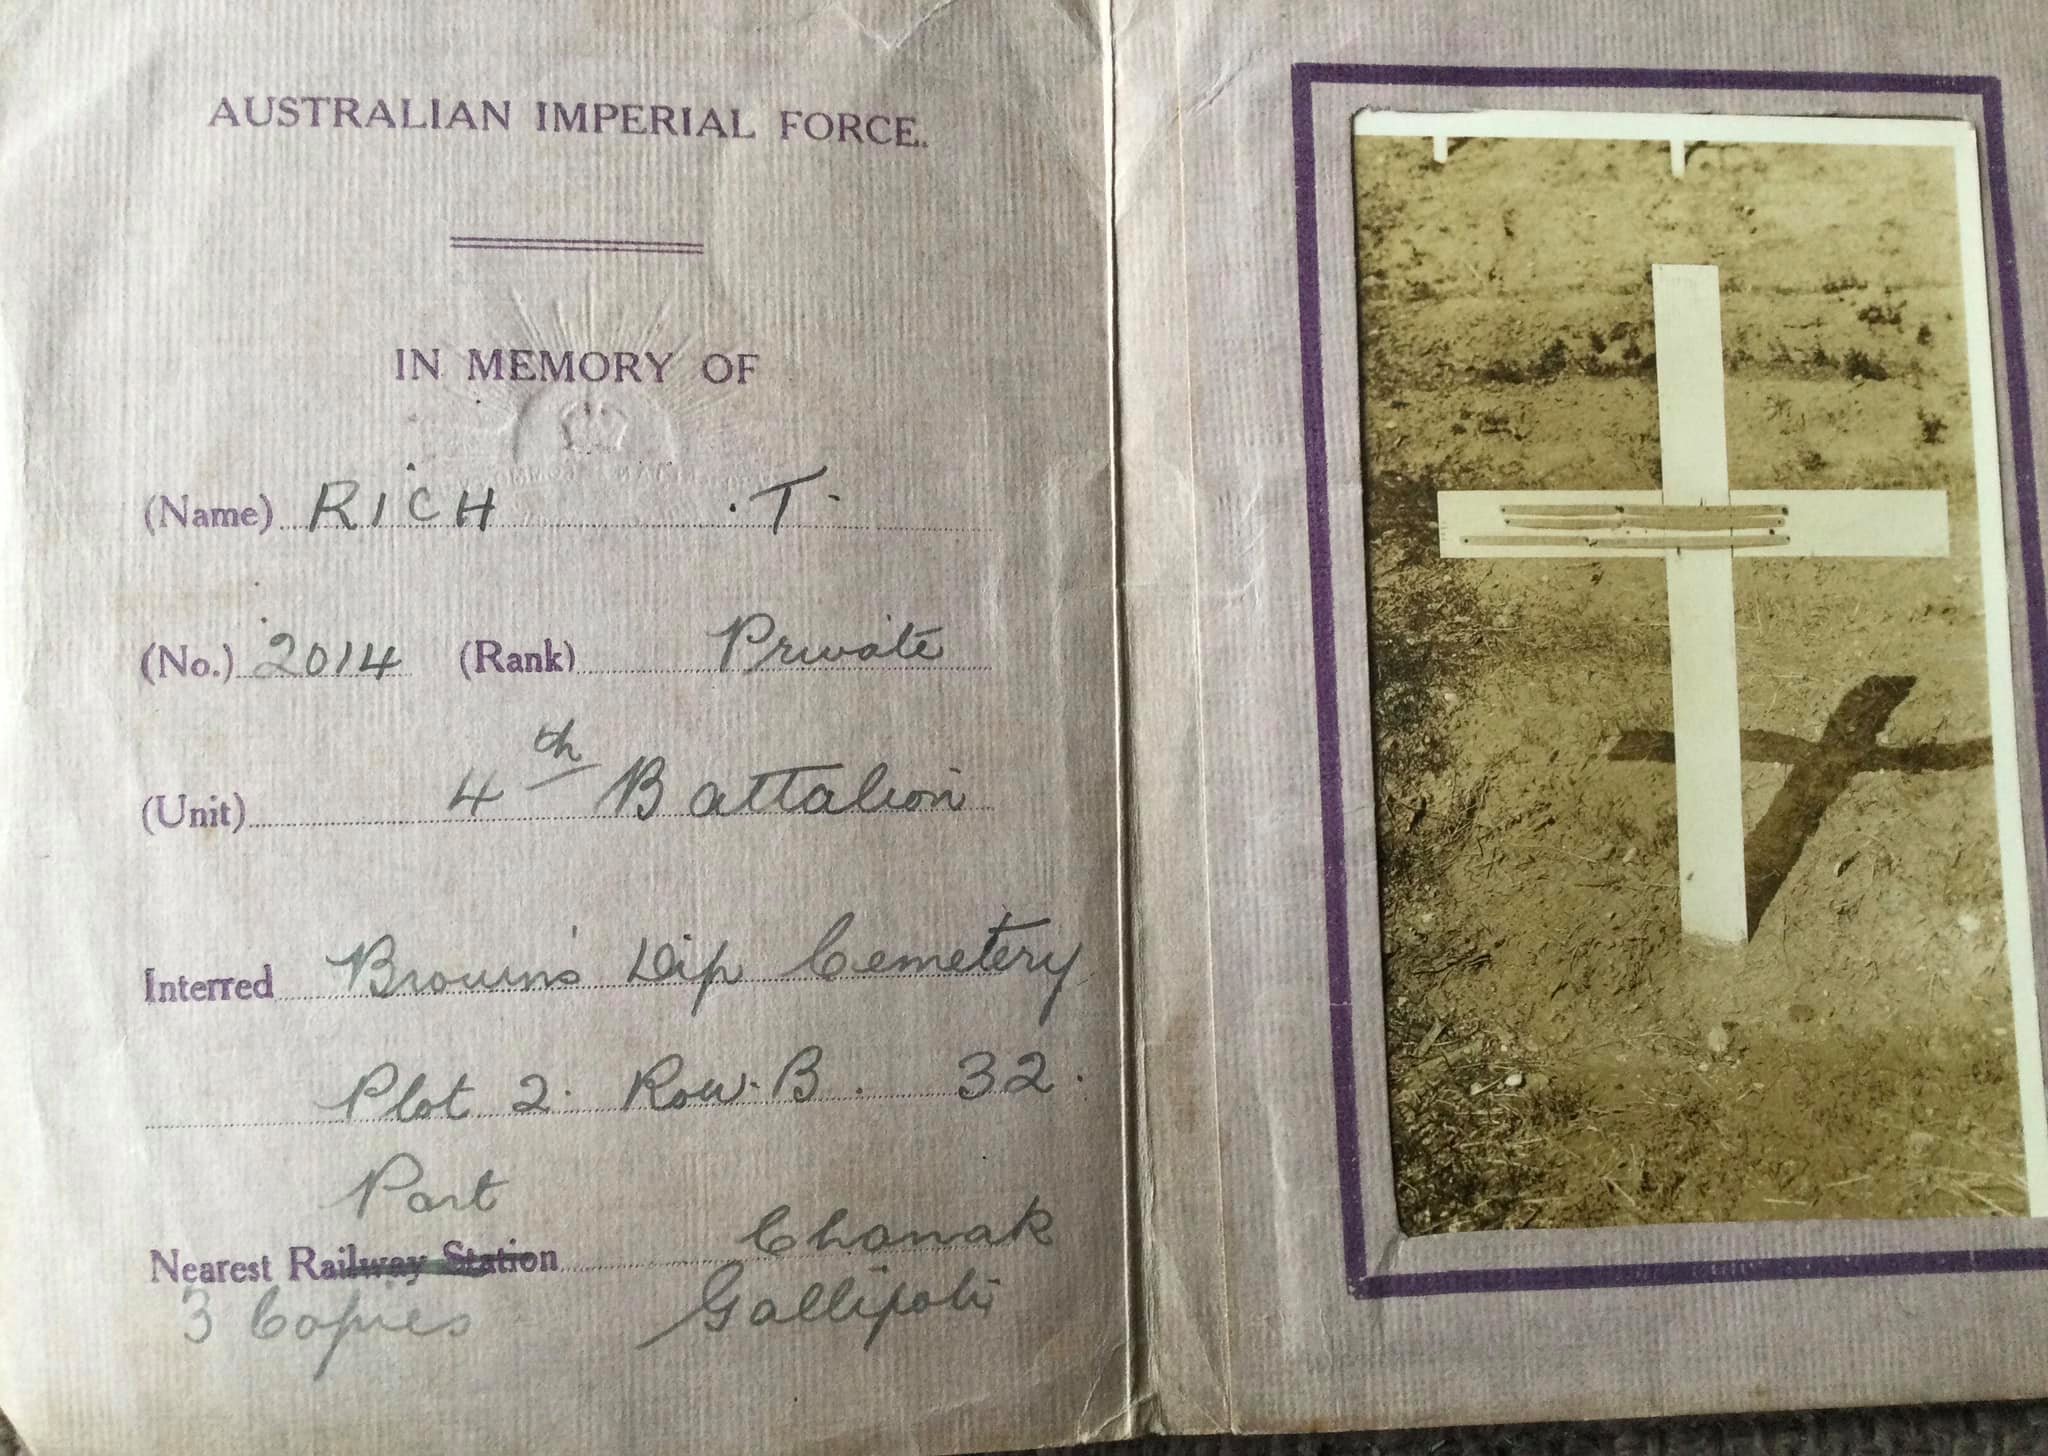 AUSTRALIAN IMPERIAL FORCE.
IN MEMORY OF
(Name) RICH .T.
(No.) 2014 (Rank) Private
(Unit) 4th Battalion
Interred Brown's Dip Cemetery
Plot 2. Row. B. 32.
Port
Nearest Railway Station Chanak
3 Copies Gallipoli